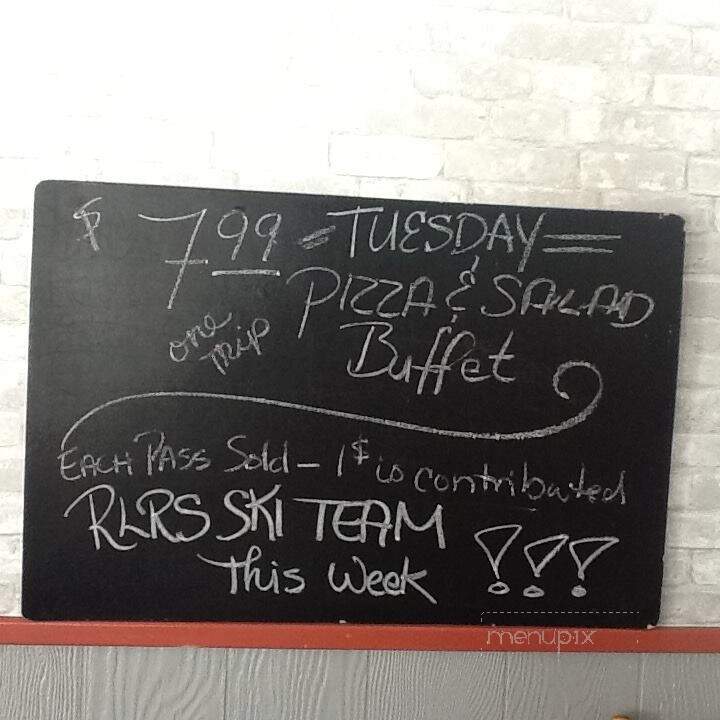 $ 7.99 = TUESDAY =
PIZZA & SALAD
one trip Buffet
EACH PASS Sold - 1$ is contributed
RLRS SKI TEAM
This Week !!!
menupix